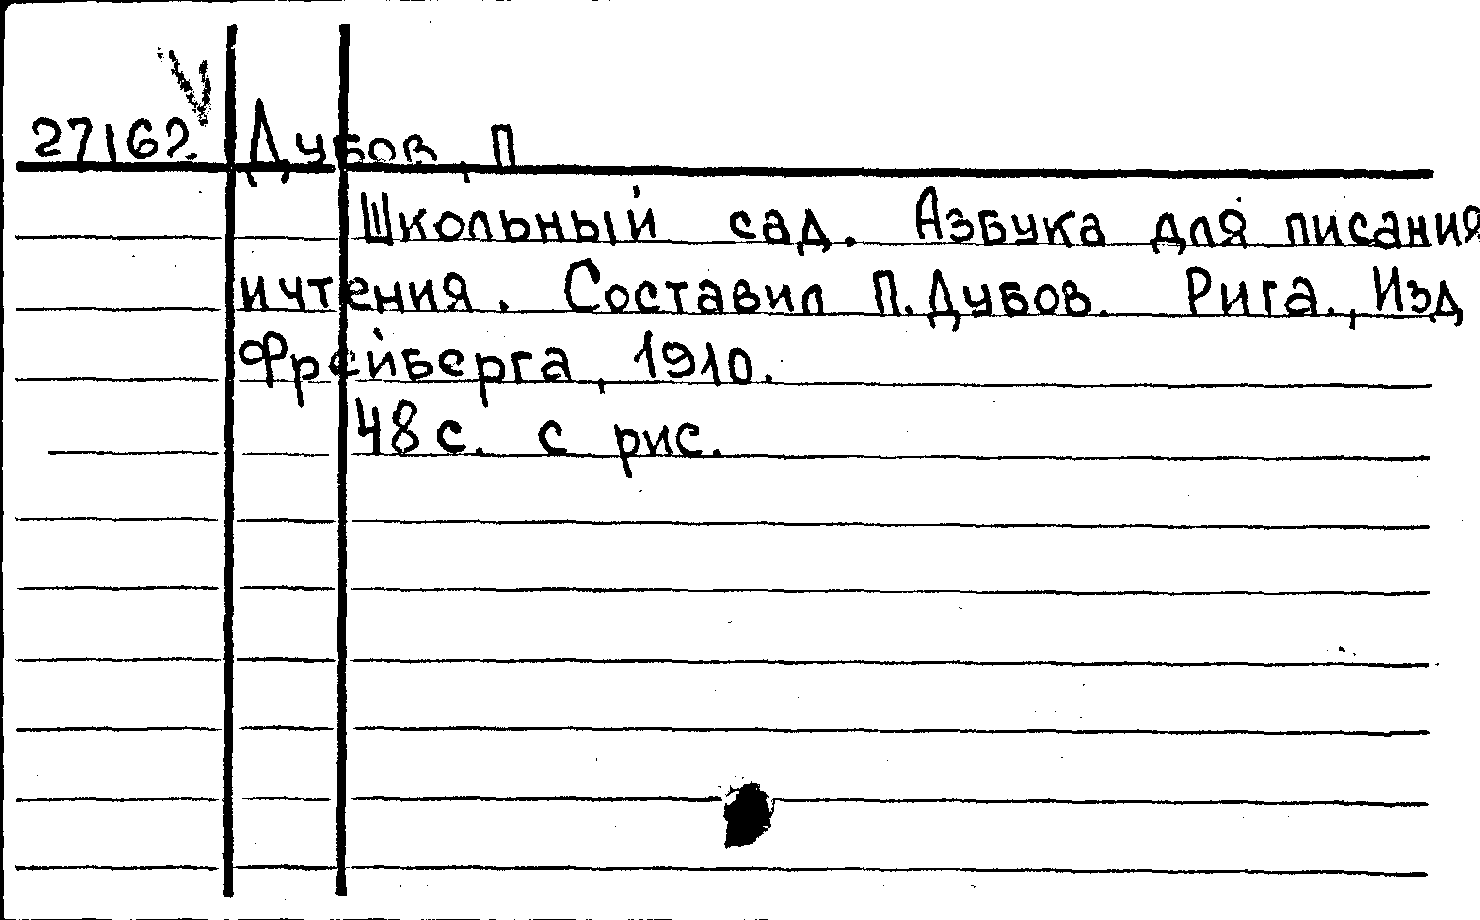 27162 Дубов, П
Школьный сад. Азбука для писания
и чтения. Составил П. Дубов. Рига., Изд
Фрейберга, 1910.
48 с. с рис.